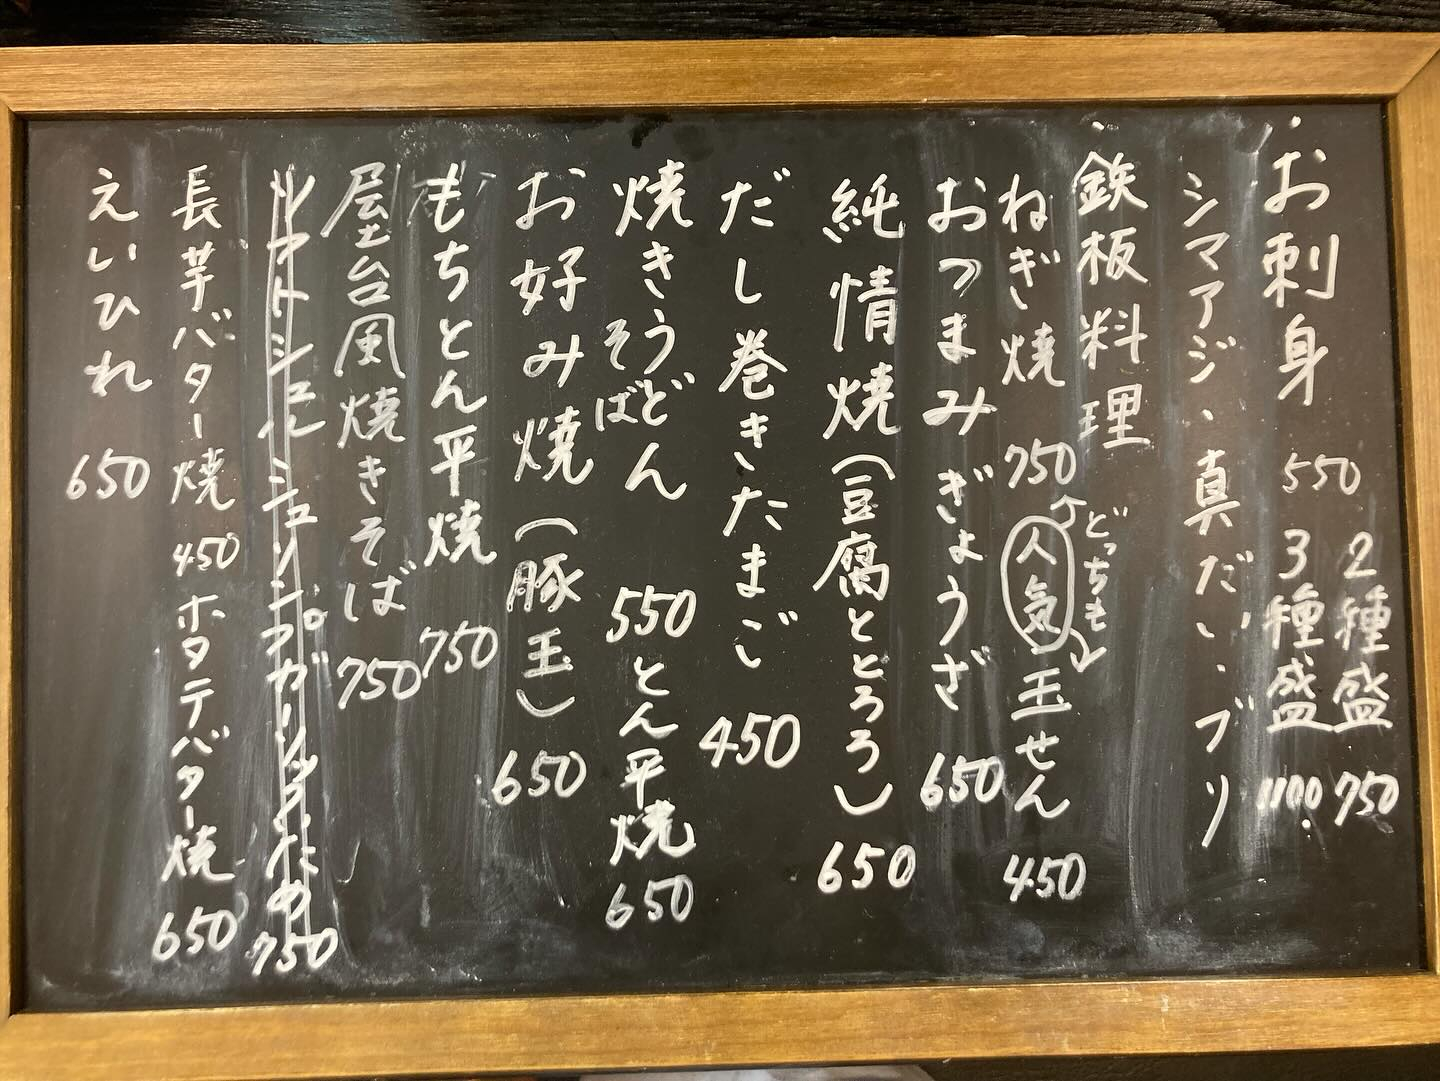 ・お刺身 550
2種盛 750
3種盛 1100
シマアジ・真だい・ブリ
・鉄板料理
ねぎ焼 750
どっちも
人気
玉せん 450
おつまみぎょうざ 650
純情焼(豆腐ととろろ) 650
だし巻きたまご 450
焼きうどん
そば
550 とん平焼 650
お好み焼(豚玉) 650
もちとん平焼 750
屋台風焼きそば 750
ソフトシェルシュリンプガーリック 750
長芋バター焼 450 ホタテバター焼 650
えいひれ 650